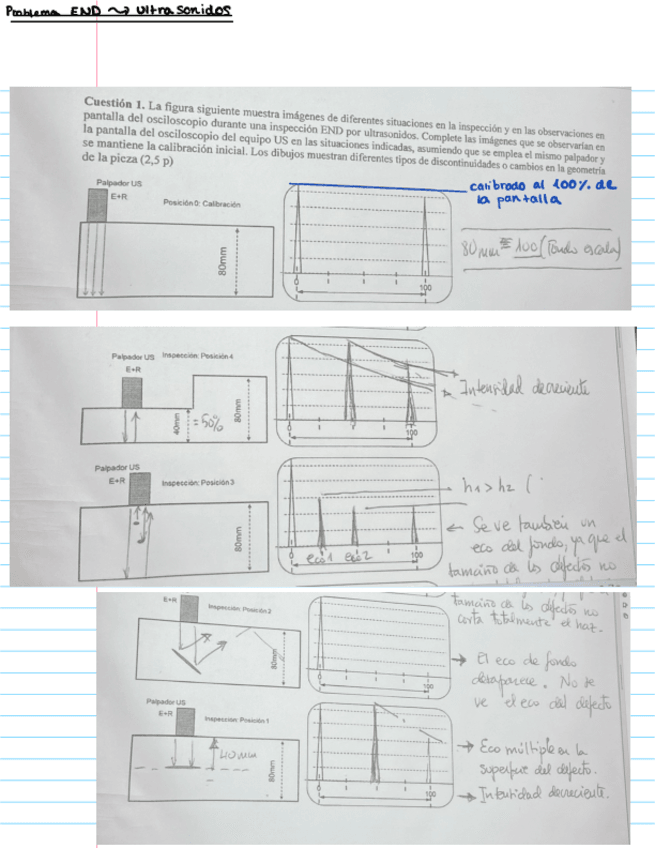 Problema END ⤳ Ultrasonidos
Cuestión 1. La figura siguiente muestra imágenes de diferentes situaciones en la inspección y en las observaciones en
pantalla del osciloscopio durante una inspección END por ultrasonidos. Complete las imágenes que se observarían en
la pantalla del osciloscopio del equipo US en las situaciones indicadas, asumiendo que se emplea el mismo palpador y
se mantiene la calibración inicial. Los dibujos muestran diferentes tipos de discontinuidades o cambios en la geometría
de la pieza (2,5 p)
Palpador US
E+R
Posición 0: Calibración
80mm
0
100
calibrado al 100% de
la pantalla
80mm ≡ 100 (Fondo escala)
Palpador US
E+R
Inspección: Posición 4
40mm
= 50%
80mm
0
100
Intensidad decreciente
Palpador US
E+R
Inspección: Posición 3
80mm
0
eco 1 eco 2
100
h1>h2 (
← Se ve también un
eco del fondo, ya que el
tamaño de los defectos no
E+R
Inspección: Posición 2
80mm
100
tamaño de los defectos no
corta totalmente el haz.
→ El eco de fondo
desaparece. No se
ve el eco del defecto
Palpador US
E+R
Inspección: Posición 1
40mm
80mm
100
→ Eco múltiple en la
superficie del defecto.
→ Intensidad decreciente.